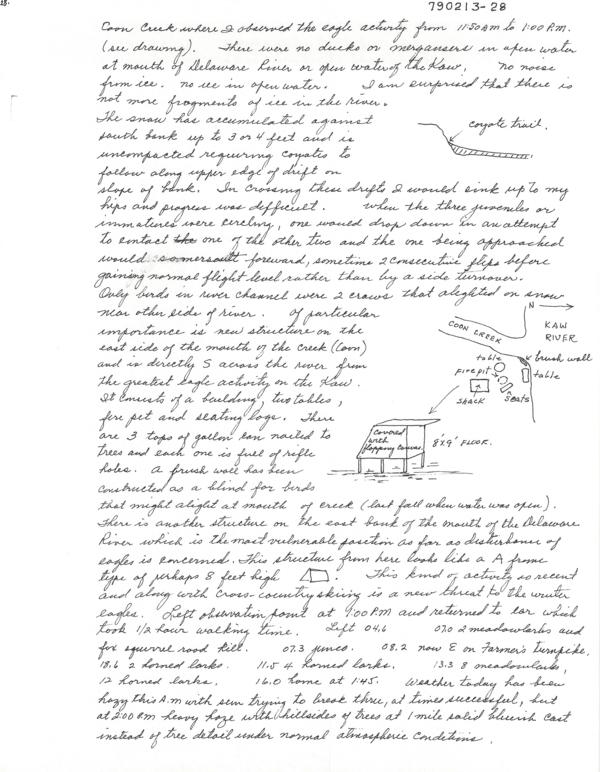 28.
790213-28
Coon Creek where I observed the eagle activity from 11:50 AM to 1:00 P.M.
(see drawing). There were no ducks or mergansers in open water
at mouth of Delaware River or open water of the Kaw. No noise
from ice. no ice in open water. I am surprised that there is
not more fragments of ice in the river.
The snow has accumulated against
south bank up to 3 or 4 feet and is
uncompacted requiring coyotes to
follow along upper edge of drift on
slope of bank. In crossing these drifts I would sink up to my
hips and progress was difficult. When the three juveniles or
immatures were circling, one would drop down in an attempt
to contact the one of the other two and the one being approached
would somersault foreward, sometime 2 consecutive flips before
gaining normal flight level rather than by a side turnover.
Only birds in river channel were 2 crows that alighted on snow
near other side of river. Of particular
importance is new structure on the
east side of the mouth of the Creek (Coon)
and is directly S across the river from
the greatest eagle activity on the Kaw.
It consists of a building, two tables,
fire pit and seating logs. There
are 3 tops of gallon can nailed to
trees and each one is full of rifle
holes. A brush wall has been
constructed as a blind for birds
that might alight at mouth of creek (last fall when water was open).
There is another structure on the east bank of the mouth of the Delaware
River which is the most vulnerable position as far as disturbance of
eagles is concerned. This structure from here looks like a A frame
type of perhaps 8 feet high. This kind of activity so recent
and along with cross-country skiing is a new threat to the winter
eagles. Left observation point at 1:00 PM and returned to car which
took 1/2 hour walking time. Left 04.6 07.0 2 meadowlarks and
fox squirrel road kill. 07.3 junco. 08.2 now E on Farmer's Turnpike.
18.6 2 horned larks. 11.5 4 horned larks. 13.3 8 meadowlarks,
12 horned larks. 16.0 home at 1:45. Weather today has been
hazy this A.M with sun trying to break three, at times successful, but
at 2:00 PM heavy haze with hillsides of trees at 1 mile solid blueish cast
instead of tree detail under normal atmospheric conditions.
coyote trail.
N
COON CREEK
KAW
RIVER
table
brush wall
fire pit
table
shack
seats
covered
with
flopping canvas
8'x9' FLOOR.